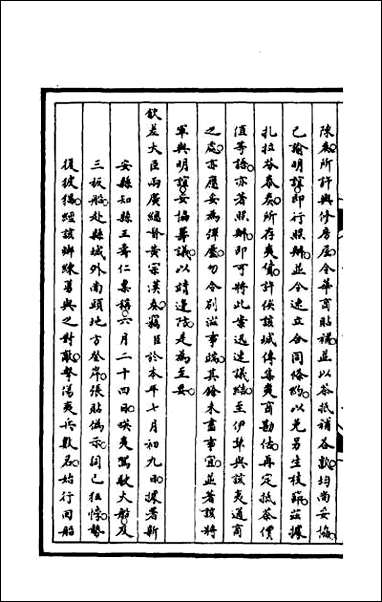 陳奏所許與修房屋令華商貼補並以茶抵補各數均尚妥協
已諭明誼即行照辦並令速立合同條約以免另生枝節茲據
扎拉芬泰奏所存夷貨許俟該城傳集夷商勘估再定抵茶價
值等語亦著照辦即可將此案迅速議結至伊犁與該夷通商
之處亦應妥為彈壓勿令別滋事端其餘未盡事宜並著該將
軍與明誼妥協籌議以靖邊陲是為至要
欽差大臣兩廣總督黃宗漢奏竊臣於本年七月初九日據署新
安縣知縣王壽仁稟稱六月二十四日𠸄夷駕駛大船及
三板船赴縣城外南頭地方登岸張貼偽示詞已狂悖勢
復披猖經該鄉練勇與之對敵擊傷夷兵數名始行回船